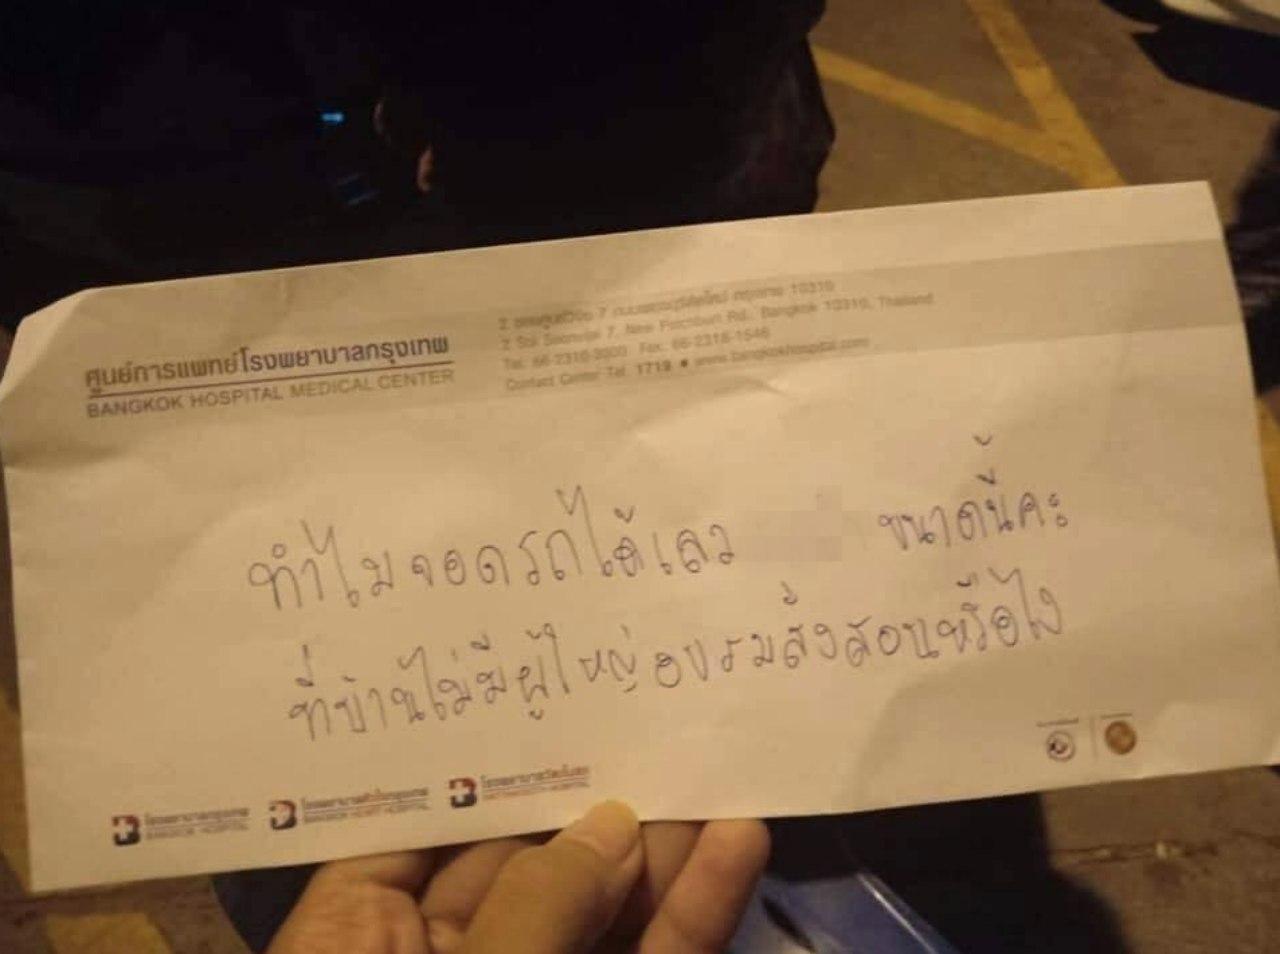 ศูนย์การแพทย์โรงพยาบาลกรุงเทพ
BANGKOK HOSPITAL MEDICAL CENTER
2 ซอยศูนย์วิจัย 7 ถนนเพชรบุรีตัดใหม่ กรุงเทพ 10310
2 Soi Soonvijai 7, New Petchburi Rd., Bangkok 10310, Thailand
Tel. 66-2310-3000 Fax. 66-2318-1546
Contact Center Tel. 1719 • www.bangkokhospital.com
ทำไมจอดรถได้เลว ขนาดนี้คะ
ที่บ้านไม่มีผู้ใหญ่อบรมสั่งสอนหรือไง
โรงพยาบาลกรุงเทพ
BANGKOK HOSPITAL
โรงพยาบาลหัวใจกรุงเทพ
BANGKOK HEART HOSPITAL
โรงพยาบาลวัฒโนสถ
WATTANOSOTH HOSPITAL